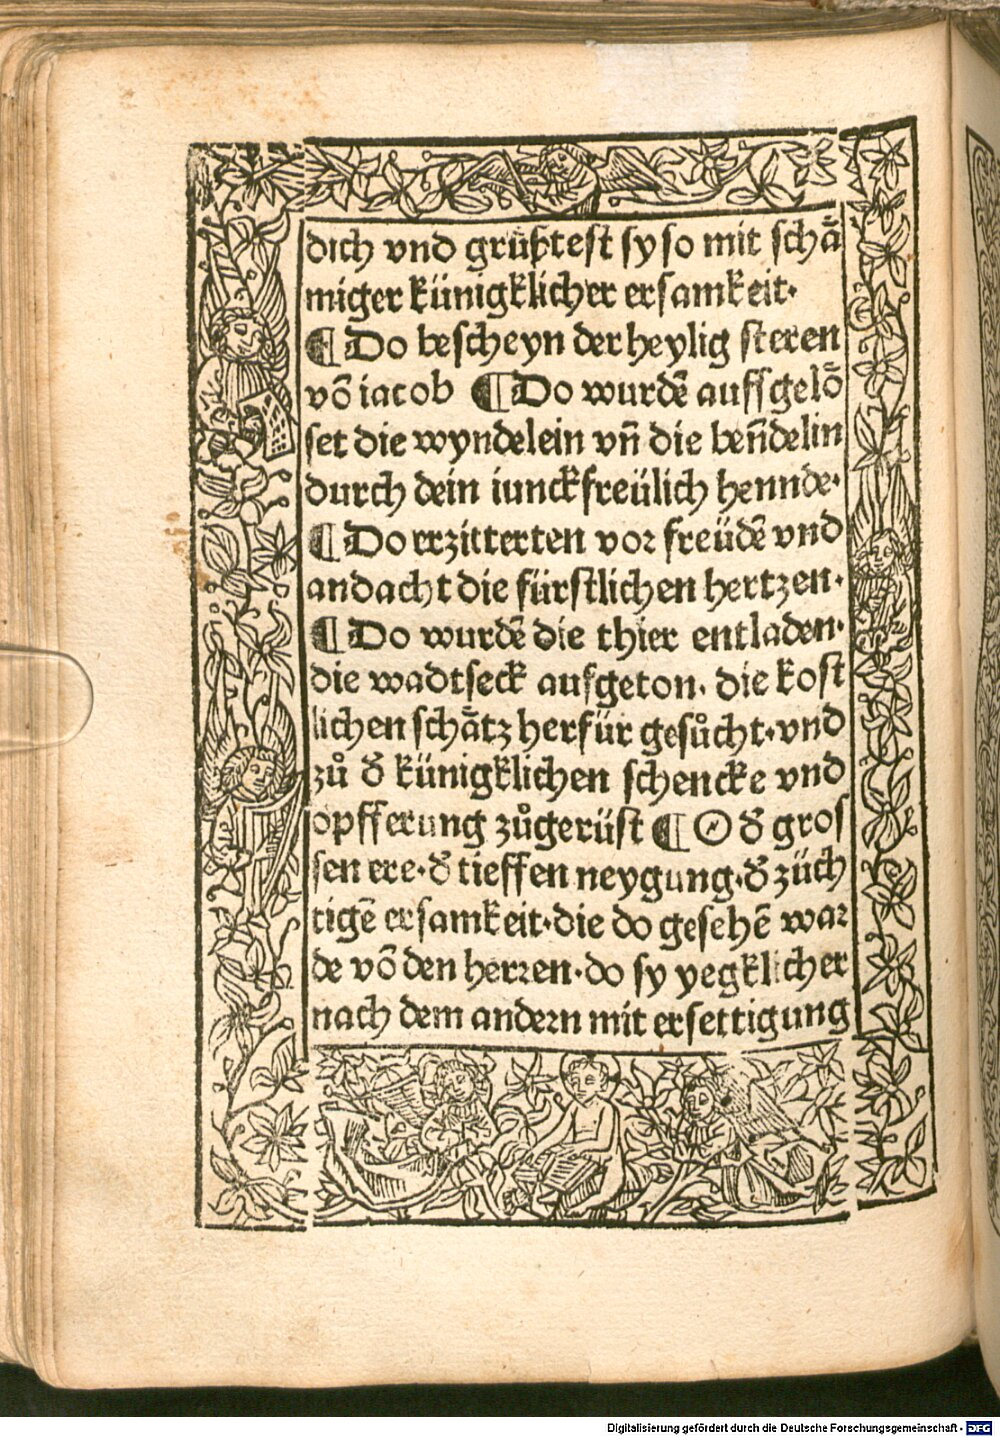 dich vnd grűßtest sy so mit schaͤ
miger künigklicher ersamkeit·
¶ Do bescheyn der heylig steren
võ iacob ¶ Do wurdẽ auffgeloͤ
set die wyndelein vñ die beñdelin
durch dein iunckfreülich hennde·
¶ Do erzitterten vor freüdẽ vnd
andacht die fürstlichen hertzen·
¶ Do wurdẽ die thier entladen·
die wadtseck aufgeton. die kost
lichen schaͤtz herfür gesůcht·vnd
zů d̕ künigklichen schencke vnd
opfferung zůgerüst ¶ O d̕ gros
sen ere·d̕ tieffen neygung·d̕ züch
tigẽ ersamkeit·die do gesehẽ war
de võ den herren·do sy yegklicher
nach dem andern mit ersettigung
Digitalisierung gefördert durch die Deutsche Forschungsgemeinschaft - DFG